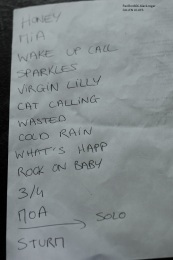 HONEY
MIA
WAKE UP CALL
SPARKLES
VIRGIN LILLY
CAT CALLING
WASTED
COLD RAIN
WHAT'S HAPP
ROCK ON BABY
3/4
MOA
SOLO
STURM